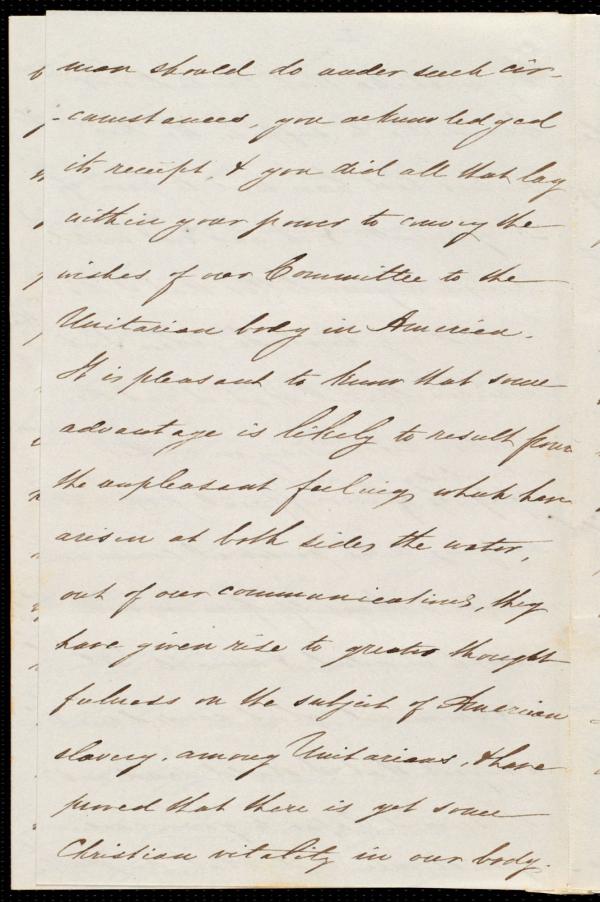 man should do under such cir-
-cumstances, you acknowledged
its receipt, & you did all that lay
within your power to convey the
wishes of our Committee to the
Unitarian body in America.
It is pleasant to know that some
advantage is likely to result from
the unpleasant feelings which have
arisen at both sides the water,
out of our communications, they
have given rise to greater thought
fulness on the subject of American
slavery, among Unitarians, & have
proved that there is yet some
Christian vitality in our body.